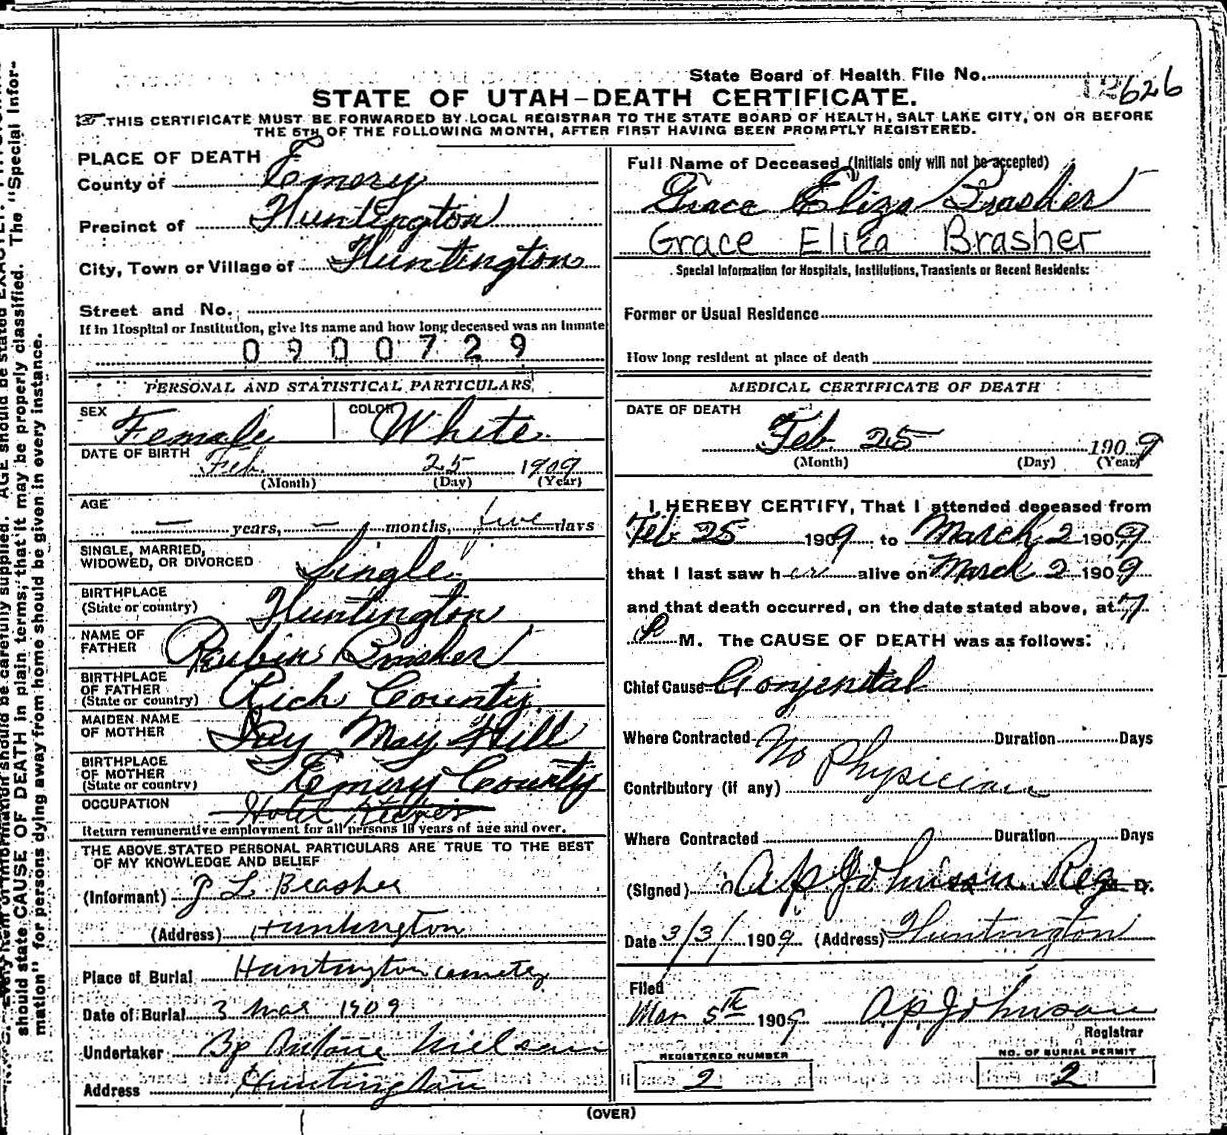 State Board of Health File No. 12626
STATE OF UTAH-DEATH CERTIFICATE.
THIS CERTIFICATE MUST BE FORWARDED BY LOCAL REGISTRAR TO THE STATE BOARD OF HEALTH, SALT LAKE CITY, ON OR BEFORE
THE 5TH OF THE FOLLOWING MONTH, AFTER FIRST HAVING BEEN PROMPTLY REGISTERED.
PLACE OF DEATH
County of Emery
Precinct of Huntington
City, Town or Village of Huntington
Street and No.
If in Hospital or Institution, give its name and how long deceased was an inmate
0900729
PERSONAL AND STATISTICAL PARTICULARS
SEX Female COLOR White
DATE OF BIRTH Feb 25 1909
(Month) (Day) (Year)
AGE
— years, — months, five days
SINGLE, MARRIED,
WIDOWED, OR DIVORCED Single
BIRTHPLACE
(State or country) Huntington
NAME OF
FATHER Reubin Brasher
BIRTHPLACE
OF FATHER
(State or country) Rich County
MAIDEN NAME
OF MOTHER May Hill
BIRTHPLACE
OF MOTHER
(State or country) Emery County
OCCUPATION
Return remunerative employment for all persons 10 years of age and over.
THE ABOVE STATED PERSONAL PARTICULARS ARE TRUE TO THE BEST
OF MY KNOWLEDGE AND BELIEF
(Informant) J L Brasher
(Address) Huntington
Place of Burial Huntington cemetey
Date of Burial 3 Mar 1909
Undertaker Bp Antone Nielsen
Address Huntington
Full Name of Deceased (Initials only will not be accepted)
Grace Eliza Brasher
Grace Eliza Brasher
Special Information for Hospitals, Institutions, Transients or Recent Residents:
Former or Usual Residence
How long resident at place of death
MEDICAL CERTIFICATE OF DEATH
DATE OF DEATH
Feb 25 1909
(Month) (Day) (Year)
I HEREBY CERTIFY, That I attended deceased from
Feb 25 1909 to March 2 1909
that I last saw her alive on March 2 1909
and that death occurred, on the date stated above, at 7
P M. The CAUSE OF DEATH was as follows:
Chief Cause Congenital
Where Contracted Duration Days
No Physician
Contributory (if any)
Where Contracted Duration Days
(Signed) A P Johnson Reg
Date 3/3/ 1909 (Address) Huntington
Filed
Mar 5th 1909 A P Johnson
Registrar
REGISTERED NUMBER
2
NO. OF BURIAL PERMIT
2
(OVER)
should state CAUSE OF DEATH in plain terms, that it may be properly classified. The "Special Infor-
mation" for persons dying away from home should be given in every instance.